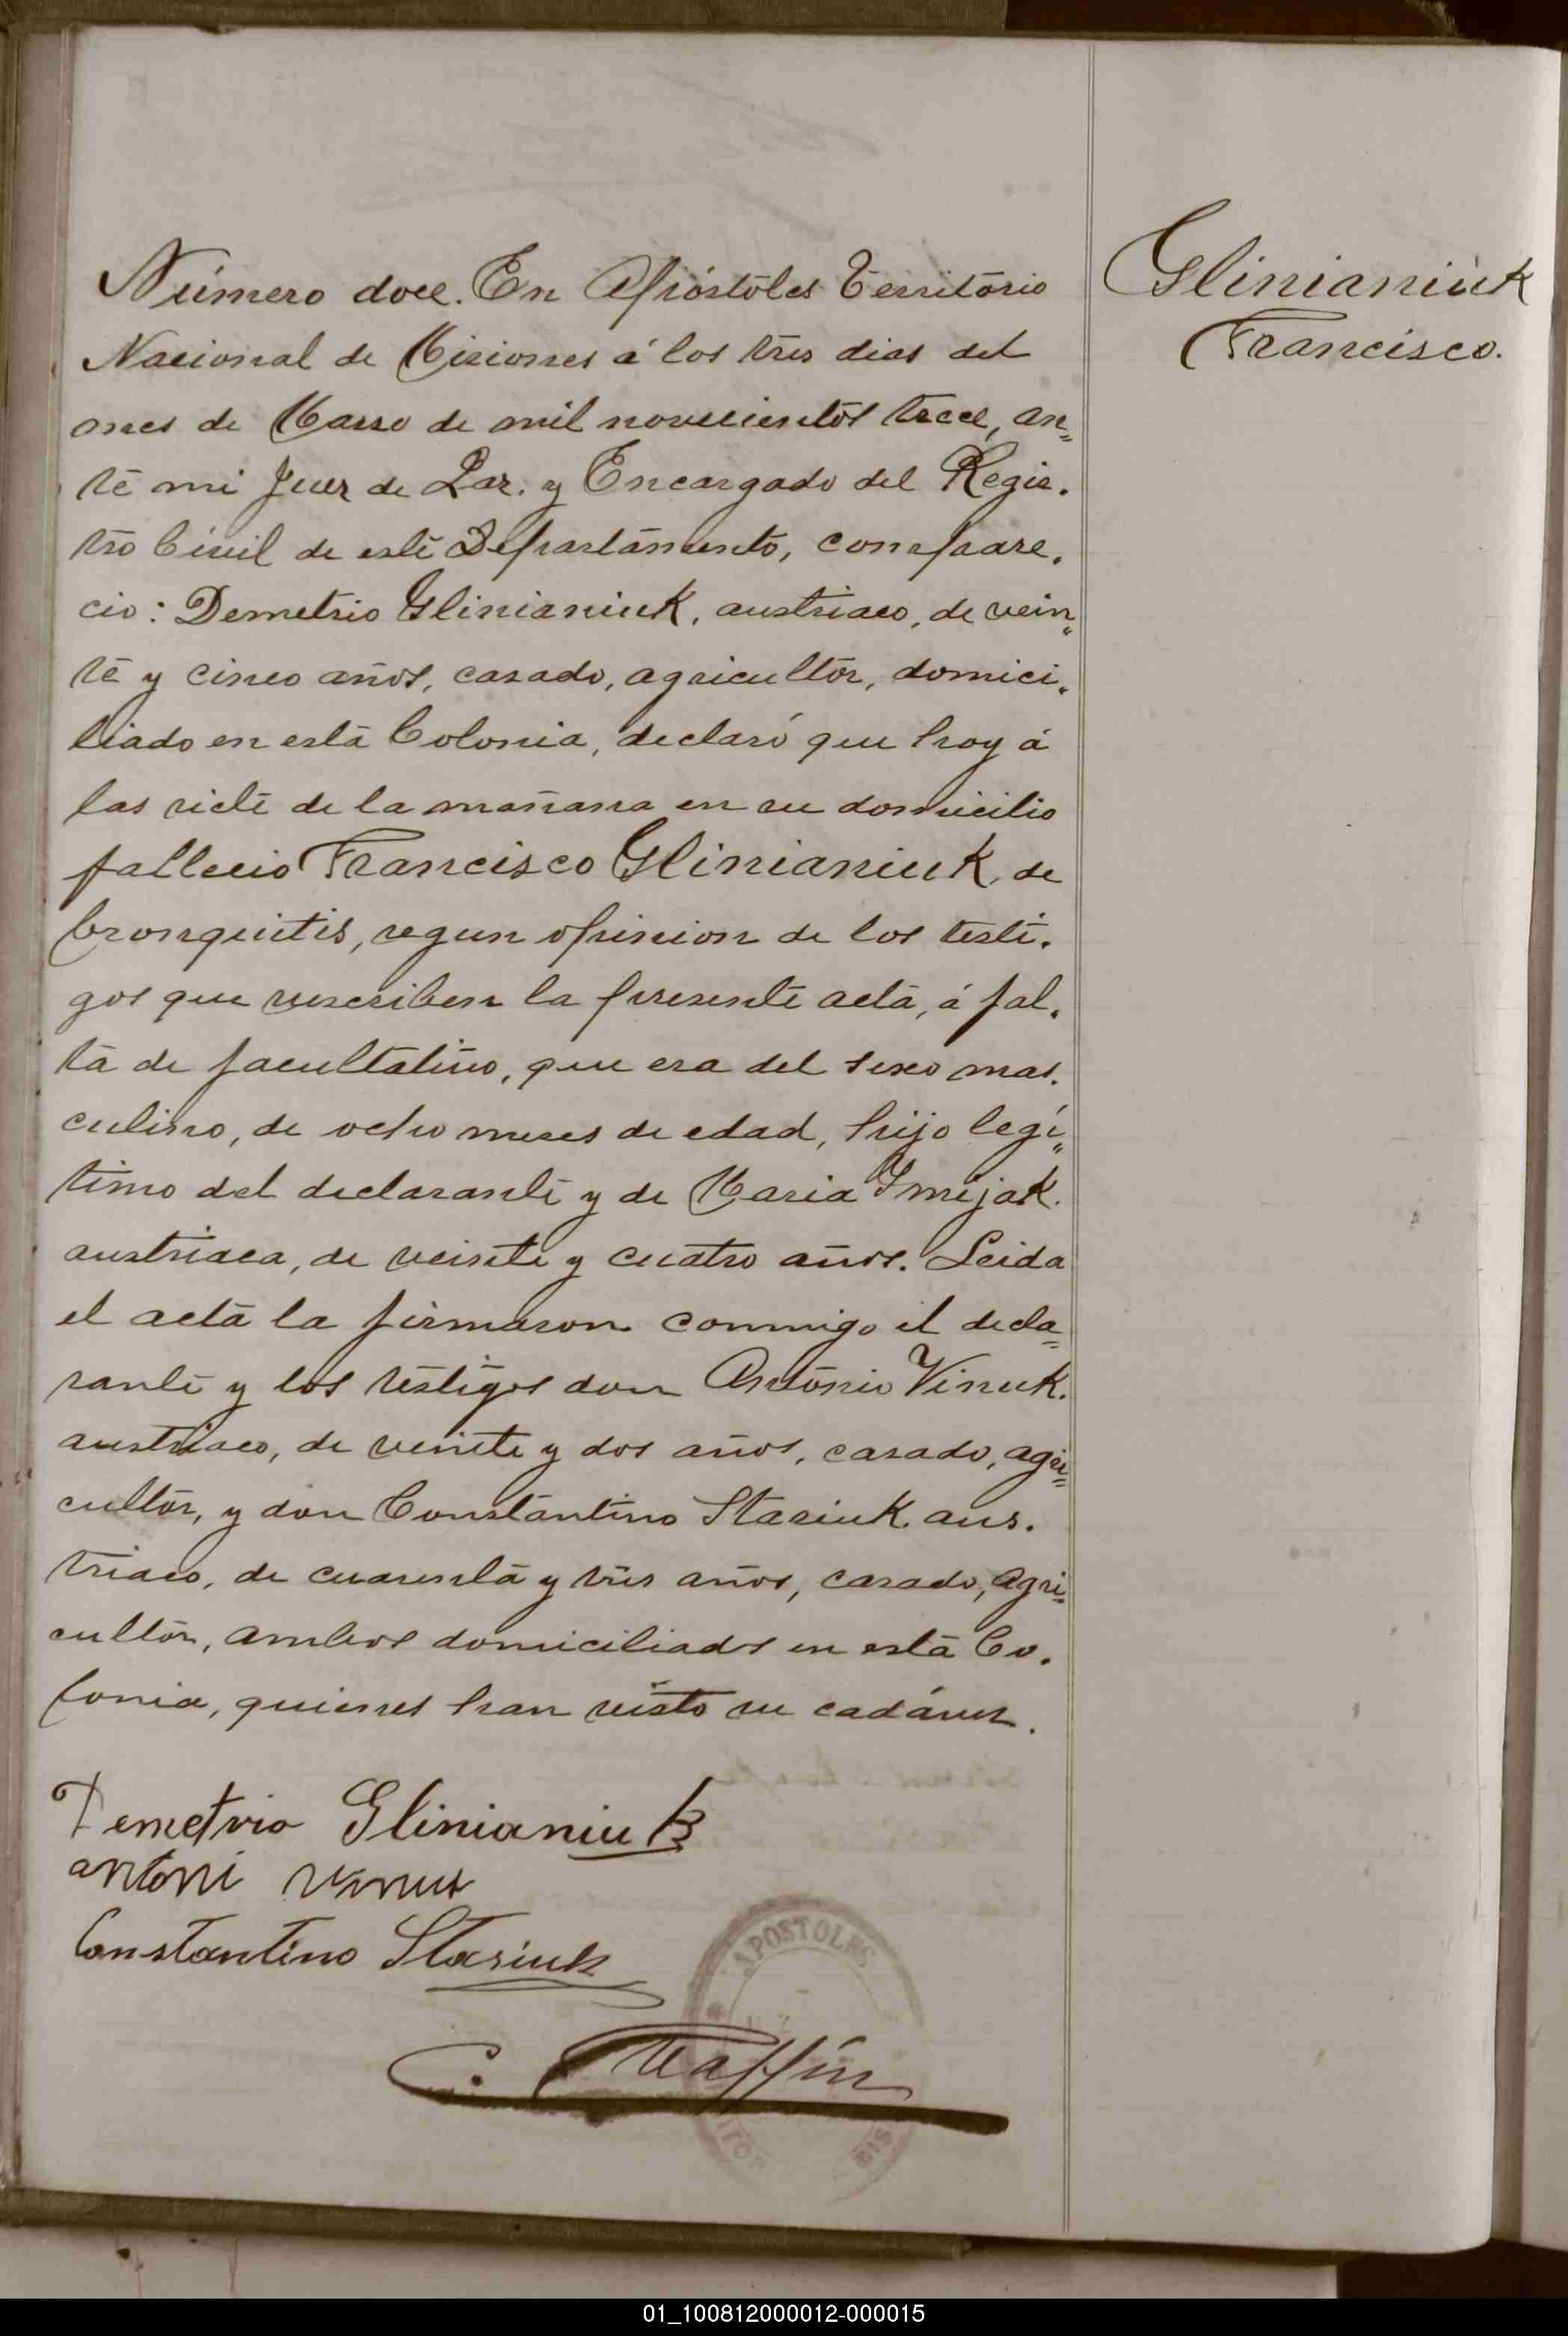 Glinianiuk
Francisco.
Número doce. En Apóstoles Território
Nacional de Misiones á los tres dias del
mes de Marzo de mil novecientos trece, an=
te mi Juez de Paz. y Encargado del Regis.
tro Civil de este Departamento, compare.
cio: Demetrio Glinianiuk, austriaco, de vein„
te y cinco años, casado, agricultor, domici„
liado en esta Colonia, declaró que hoy á
las siete de la mañana en su domicilio
fallecio Francisco Glinianiuk, de
bronquitis, segun opinion de los testi.
gos que suscriben la presente acta, á fal.
ta de facultativo, que era del sexo mas.
culino, de ocho meses de edad, hijo legí„
timo del declarante y de Maria Smijak.
austriaca, de veinte y cuatro años. Leida
el acta la firmaron conmigo el decla=
rante y los testigos don Antonio Vinuk.
austriaco, de veinte y dos años, casado, agri=
cultor, y don Constantino Stasiuk. aus.
triaco, de cuarenta y tres años, casado, agri=
cultor, ambos domiciliados en esta Co.
lonia, quienes han visto su cadáver.
Demetrio Glinianiuk
antoni vinuk
Constantino Stasiuk
APOSTOLES
C.
01_100812000012-000015